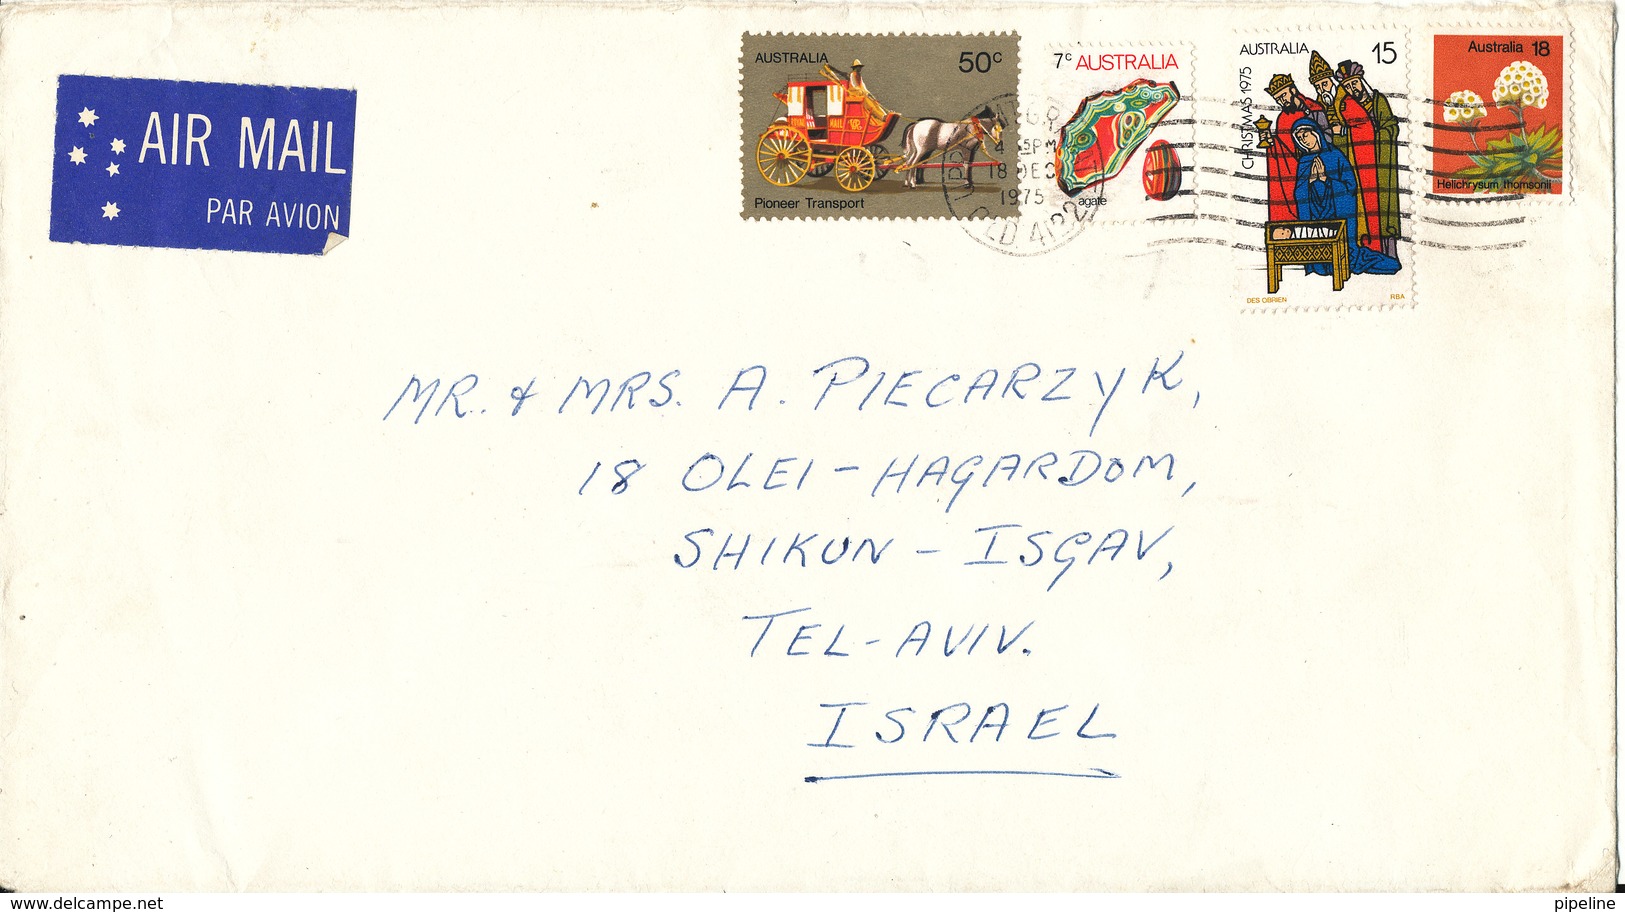 AIR MAIL
PAR AVION
AUSTRALIA 50c
Pioneer Transport
7c AUSTRALIA
agate
AUSTRALIA 15
CHRISTMAS 1975
DES OBRIEN RBA
Australia 18
Helichrysum thomsonii
18 DEC
1975
QLD 4122
MR. & MRS. A. PIECARZYK,
18 OLEI-HAGARDOM,
SHIKUN - ISGAV,
TEL-AVIV.
ISRAEL
www.delcampe.net
pipeline